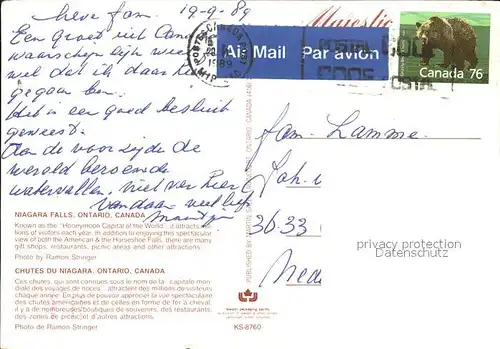 lieve fam. 19-9-89
Een groet uit Can
waarschijnlijk wee
wel dat ik daar he
gegaan ben.
Het is een goed besluit
geweest.
Aan de voorzijde de
wereld beroemde
watervallen, niet ver hier
vandaan. veel liefs
Majestic
CANADA
1989
Air Mail Par avion
POSTAL CODE
CODE POSTAL
Canada 76
fam. Lamme.
Joh.
3633
Nede
protected by copyright
Datenschutz
NIAGARA FALLS, ONTARIO, CANADA
Known as the "Honeymoon Capital of the World", it attracts
ions of visitors each year. In addition to enjoying this spectacular
view of both the American & the Horseshoe Falls, there are many
gift shops, restaurants, picnic areas and other attractions.
Photo by Ramon Stringer
CHUTES DU NIAGARA, ONTARIO, CANADA
Ces chutes, qui sont connues sous le nom de la "capitale mondi
ale des voyages de noces" attirent des millions de visiteurs
chaque année. En plus de pouvoir apprécier la vue spectaculaire
des chutes américaines et de celles en forme de fer à cheval,
il y a de nombreuses boutiques de souvenirs, des restaurants,
des zones de picnic et d'autres attractions.
Photo de Ramon Stringer
KS-8760